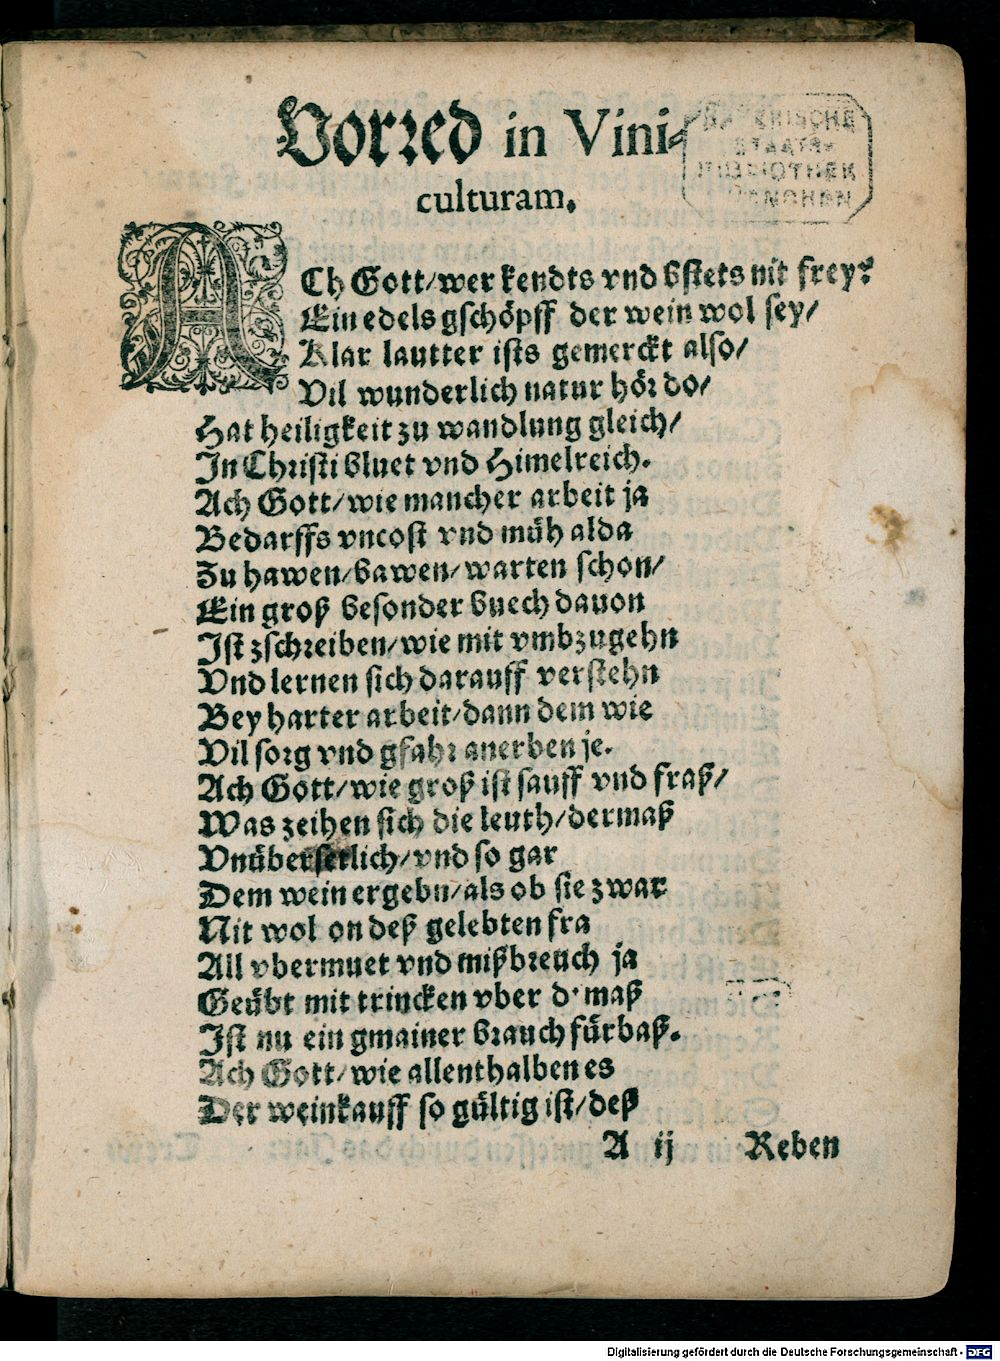 Vorred in Vini-
culturam.
ACh Gott/wer kendts vnd bstets nit frey?
Ein edels gschöpff der wein wol sey/
Klar lautter ists gemerckt also/
Vil wunderlich natur hör do/
Hat heiligkeit zu wandlung gleich/
In Christi bluet vnd Himelreich.
Ach Gott/wie mancher arbeit ja
Bedarffs vncost vnd müh alda
Zu hawen/bawen/warten schon/
Ein groß besonder buech dauon
Ist zschreiben/wie mit vmbzugehn
Vnd lernen sich darauff verstehn
Bey harter arbeit/dann dem wie
Vil sorg vnd gfahr anerben je.
Ach Gott/wie groß ist sauff vnd fraß/
Was zeihen sich die leuth/dermaß
Vnüberserlich/vnd so gar
Dem wein ergebn/als ob sie zwar
Nit wol on deß gelebten fra
All vbermuet vnd mißbreuch ja
Geübt mit trincken vber d' maß
Ist nu ein gmainer brauch fürbaß.
Ach Gott/wie allenthalben es
Der weinkauff so gültig ist/deß
A ij Reben
BAYERISCHE
STAATS-
BIBLIOTHEK
MÜNCHEN
Digitalisierung gefördert durch die Deutsche Forschungsgemeinschaft - DFG